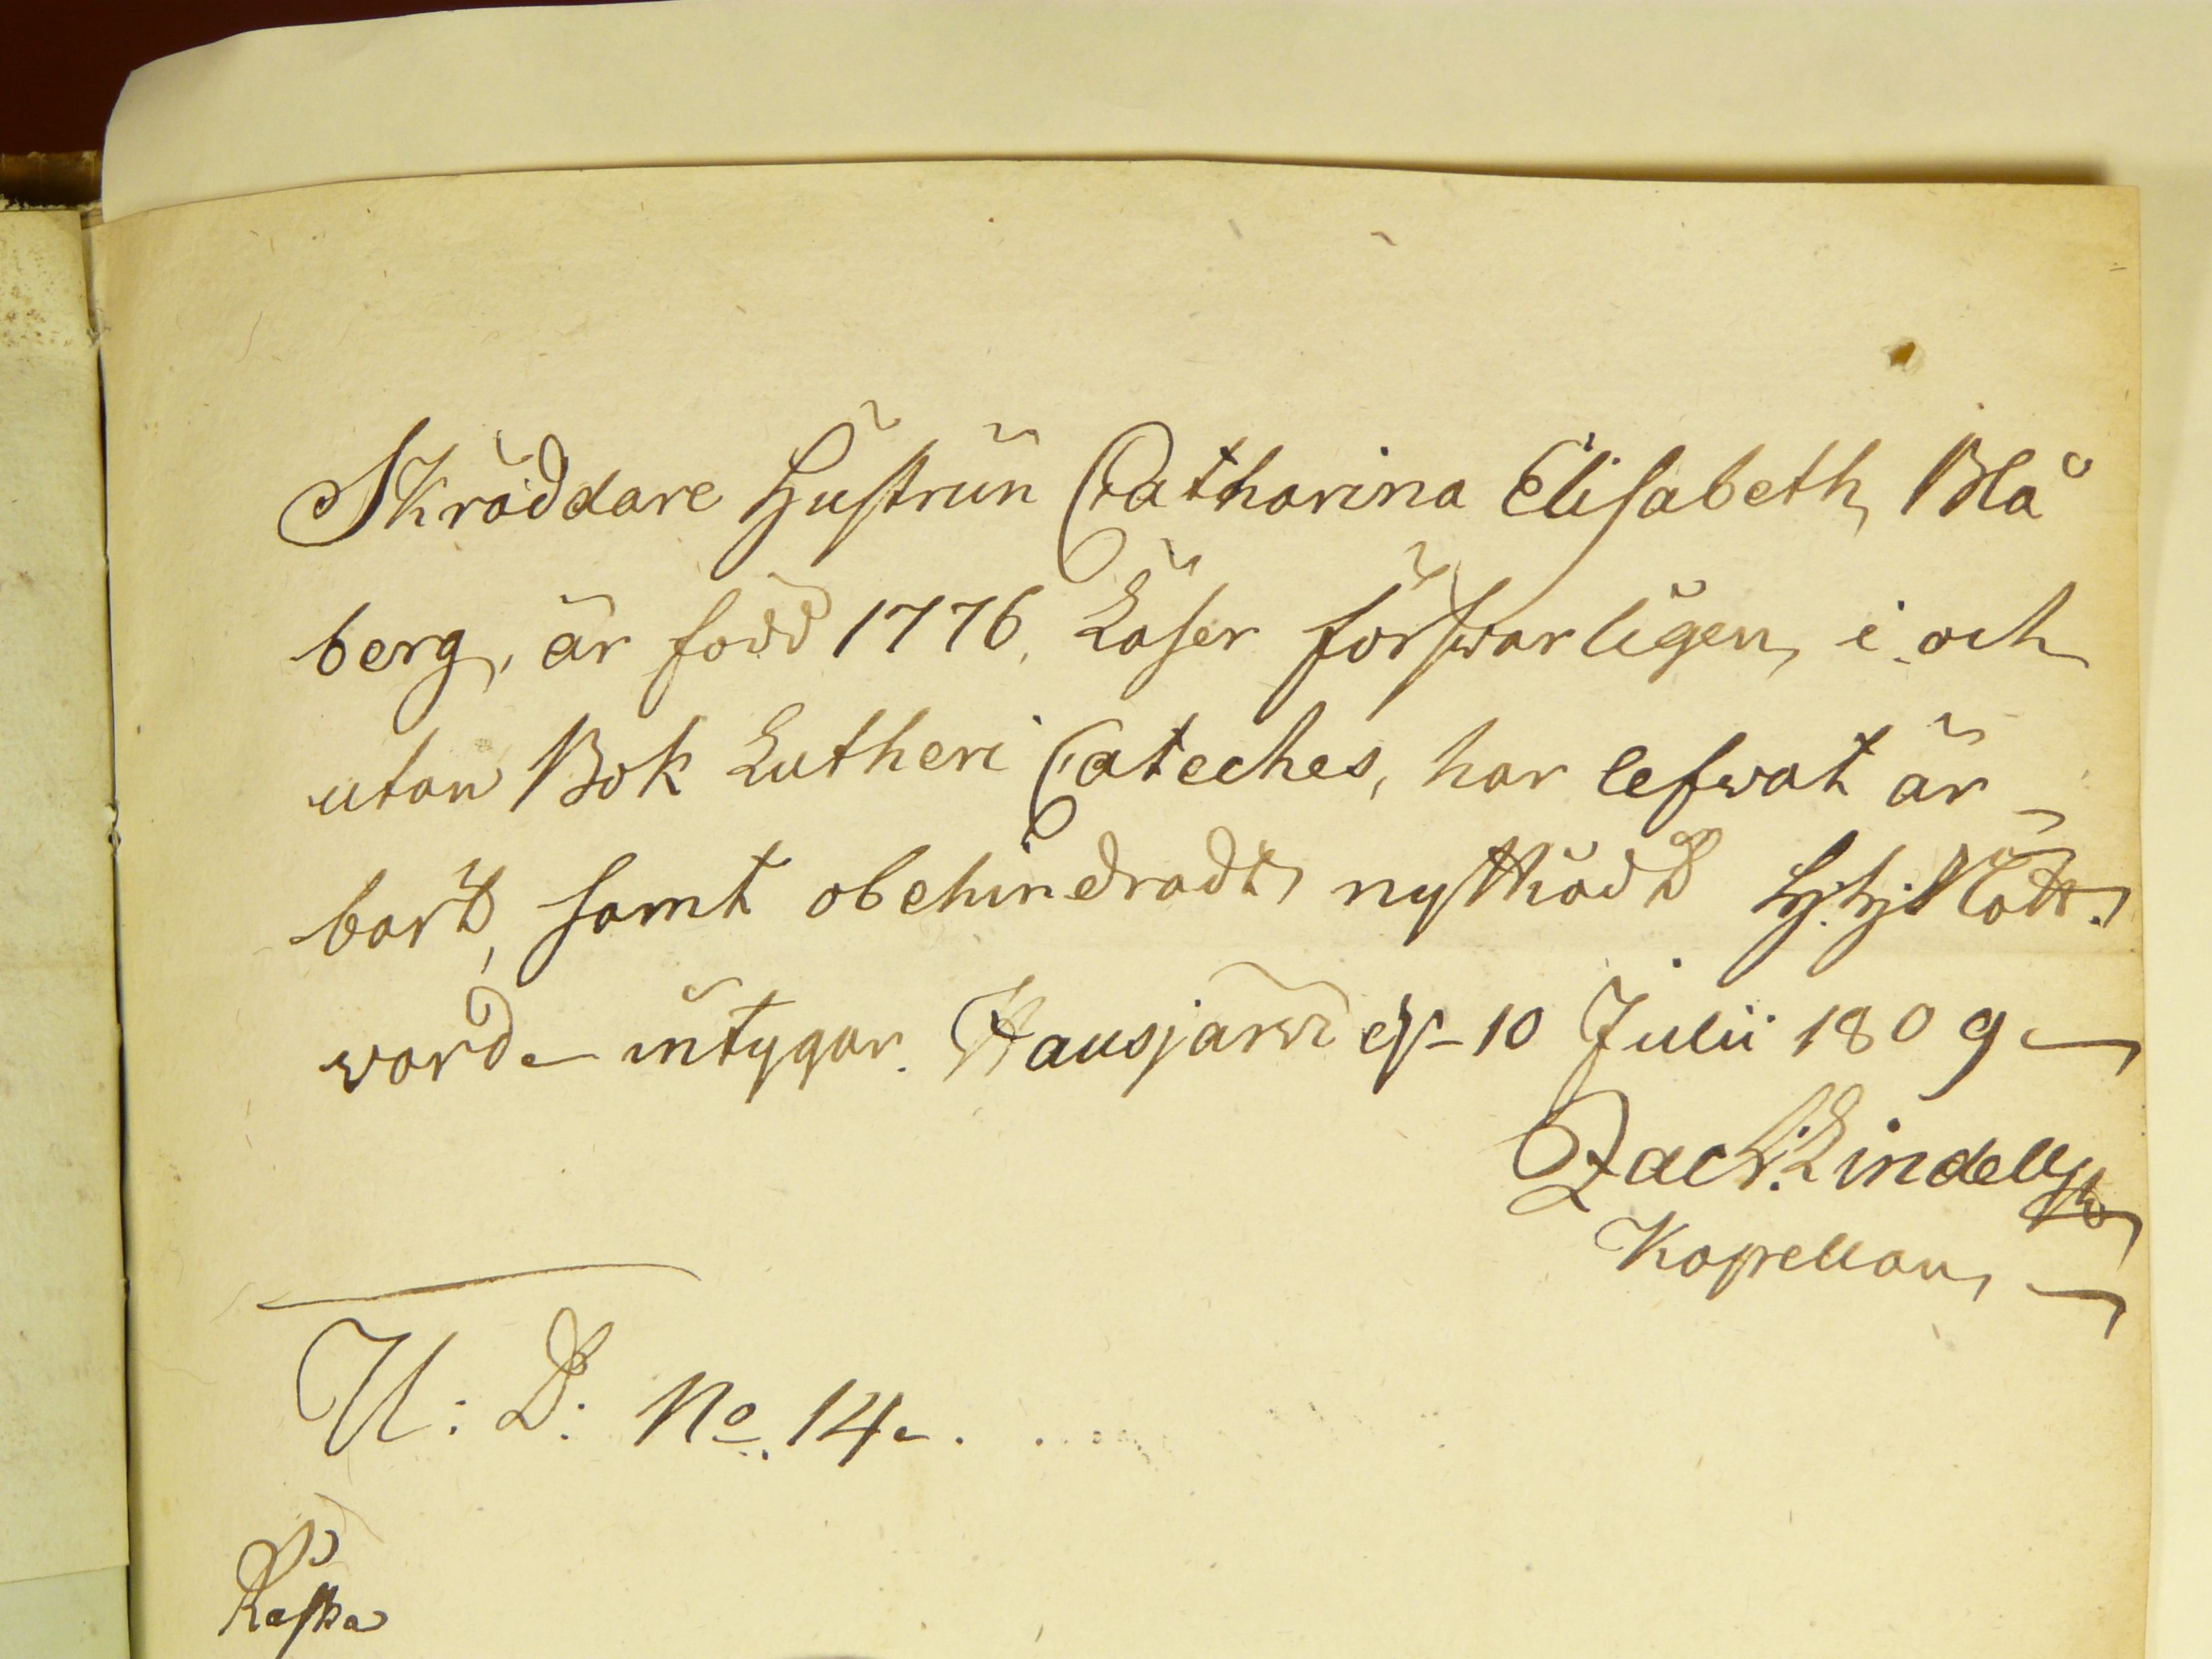 Skräddare Hustrun Catharina Elisabeth Blå
berg, är född 1776, Läser försvarligen, i och
utan Bok Lutheri Cateches, har lefwat är
bart, samt obehindradt nyttiadt H. H. Natt
vard intygar. Hausjärwi d. 10 Julii 1809
Zach: Lindell
Kapellan
U: D: No. 14.